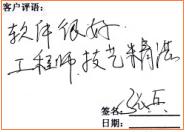 客户评语:
软件很好.
工程师技艺精湛
签名: 张兵
日期: